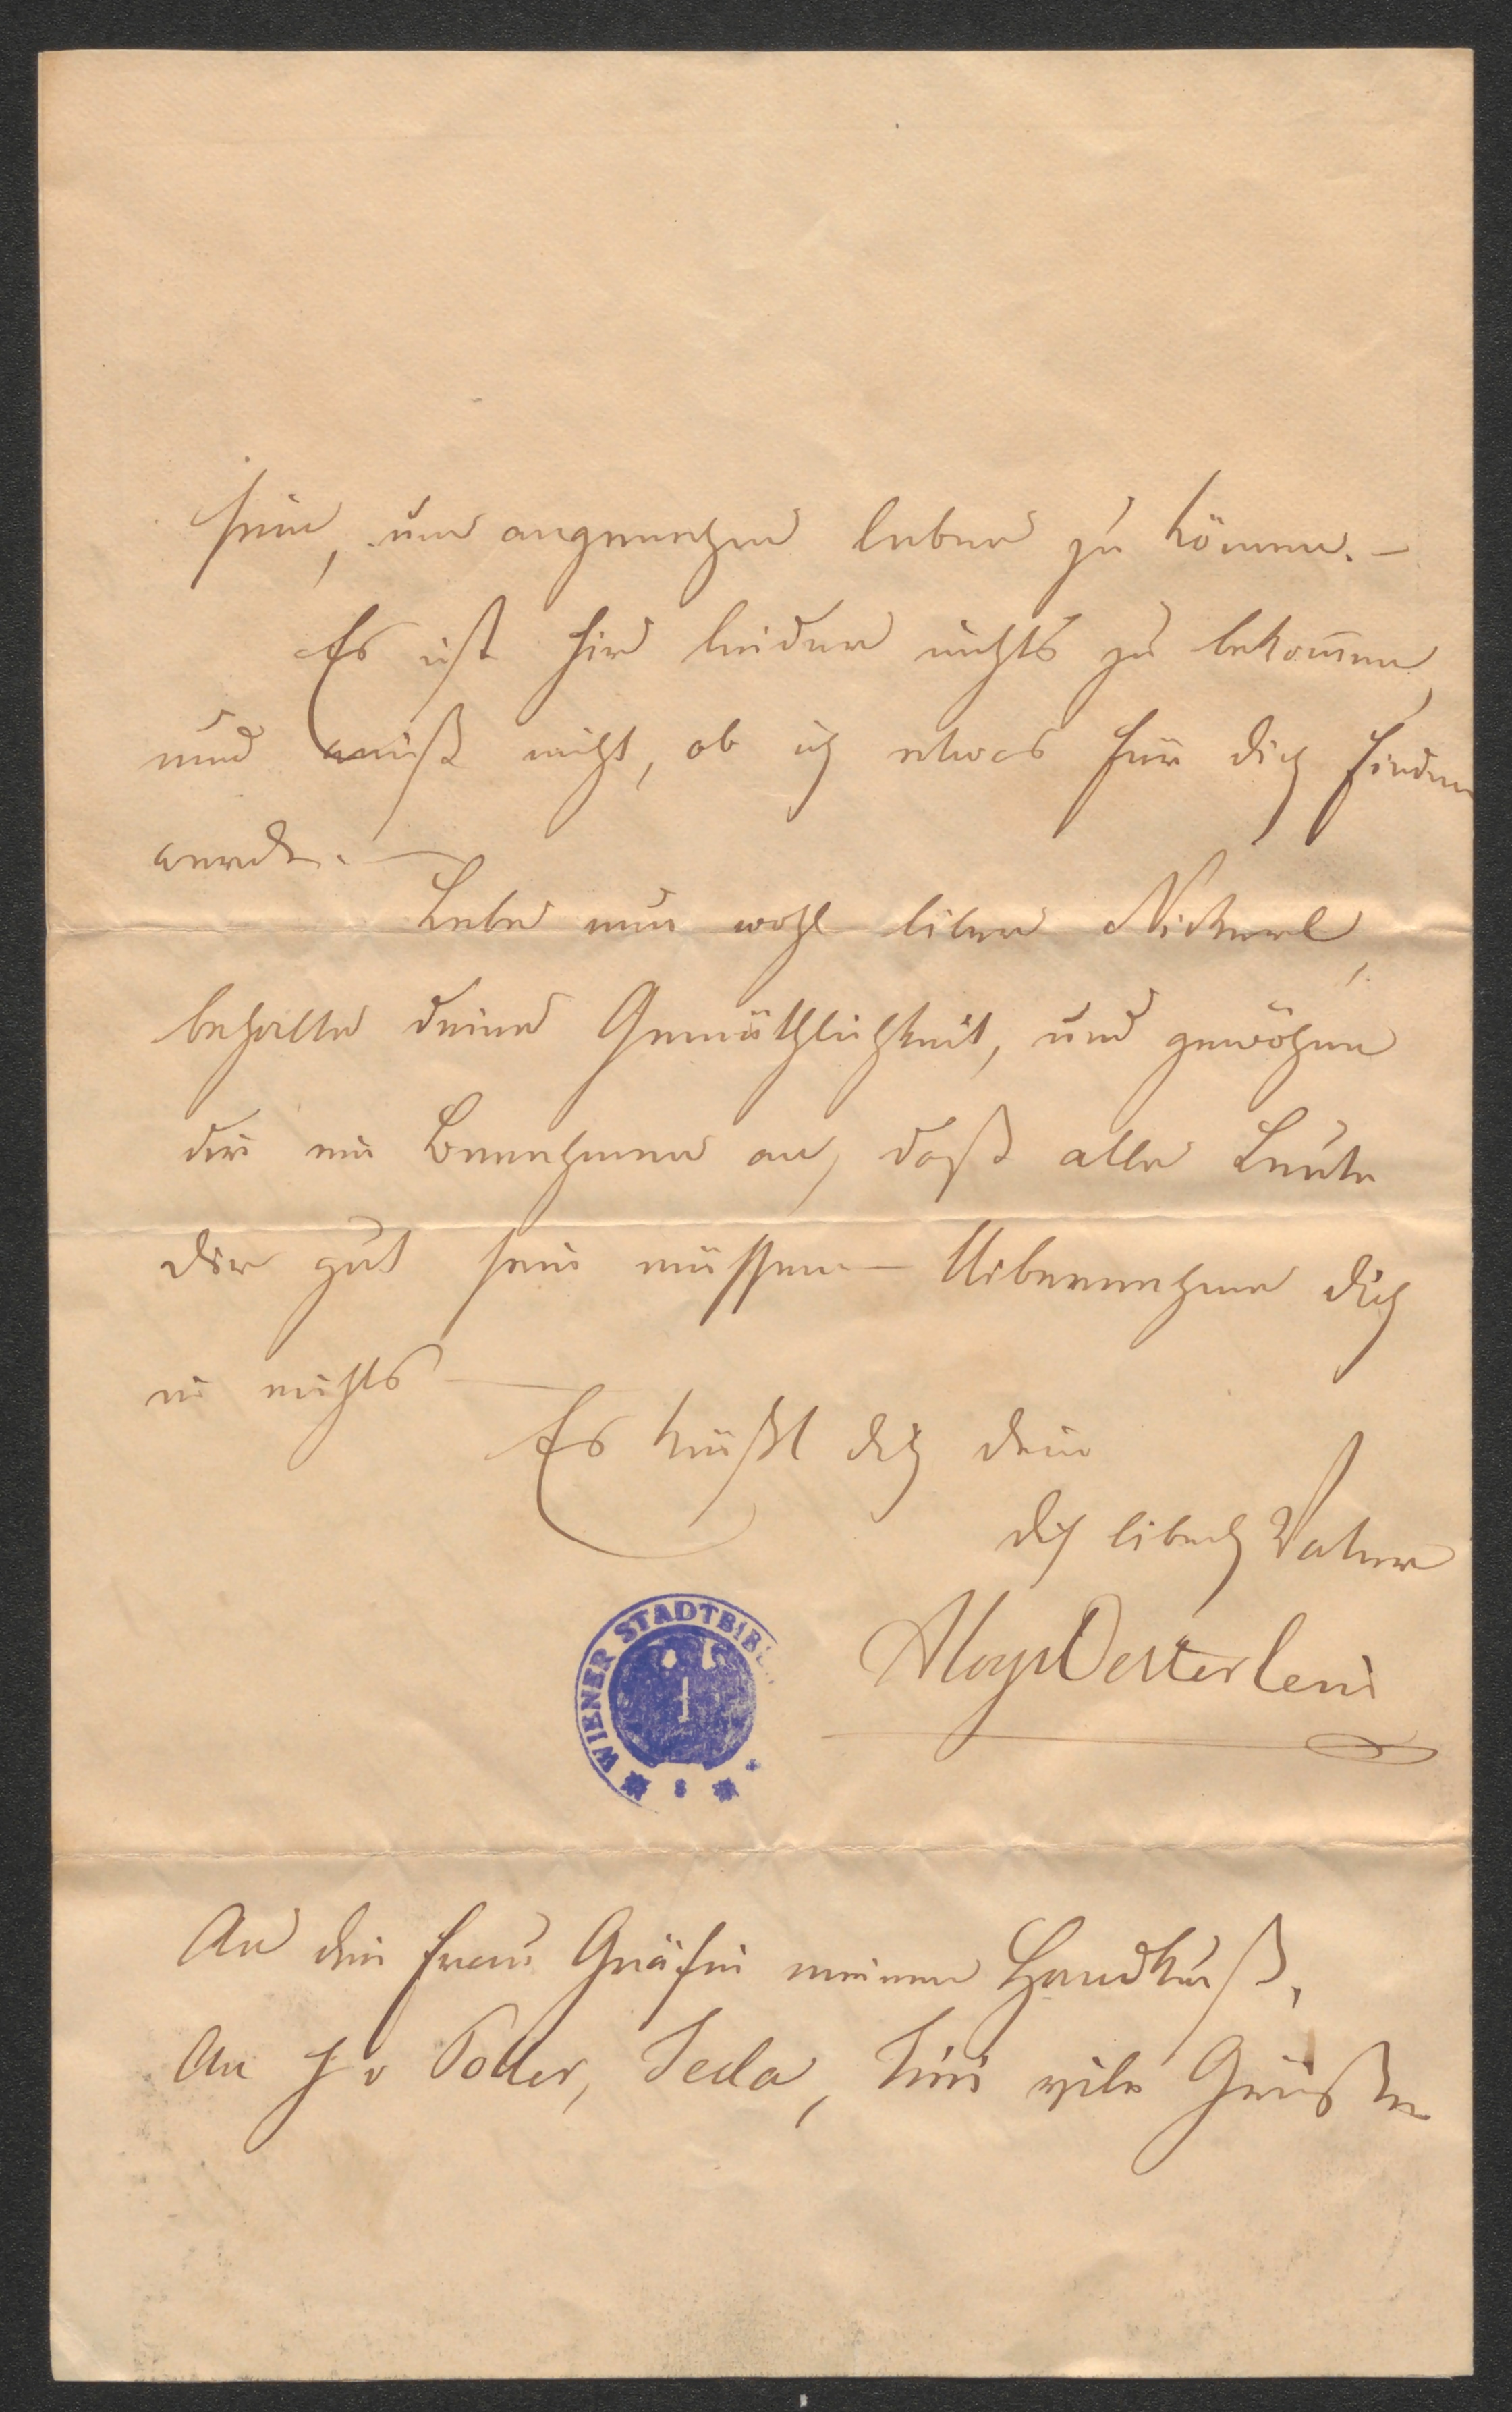 sein, um angenehm leben zu können. –
Es ist hier leider nichts zu bekom̄en,
und weiß nicht, ob ich etwas für dich finden
werde. —
Lebe nun wohl lieber Nickerl,
behalte deine Gemüthlichkeit, und gewöhne
dir ein Benehmen an, daß alle Leute
dir gut sein müssen – Uibernehme dich
in nichts —
Es küßt dich dein
dich liebend Vater
Aloys Oesterlein
WIENER STADTBIB
An die Frau Gräfin meinen Handkuß,
An H v Potter, Seda, Tini viele Grüße